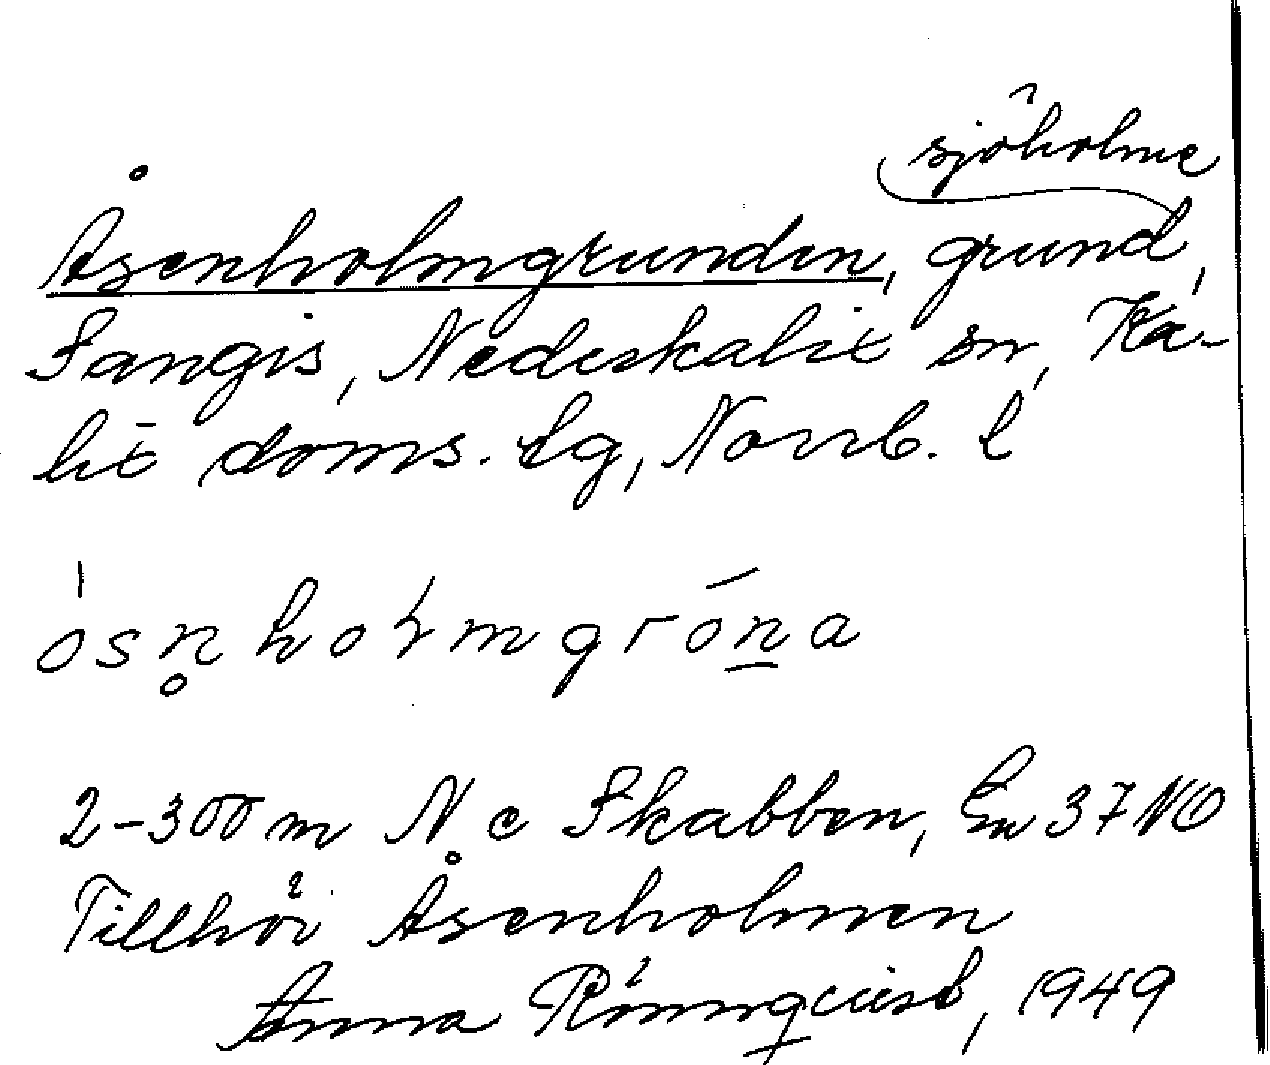 sjöholme
Åsenholmgrunden, grund,
Sangis, Nederkalix sn, Ka-
lix doms. lg, Norrb. l
2-300 m N e Skabben, En 37 NO
Tillhör Åsenholmen
Anna Rönnqvist, 1949